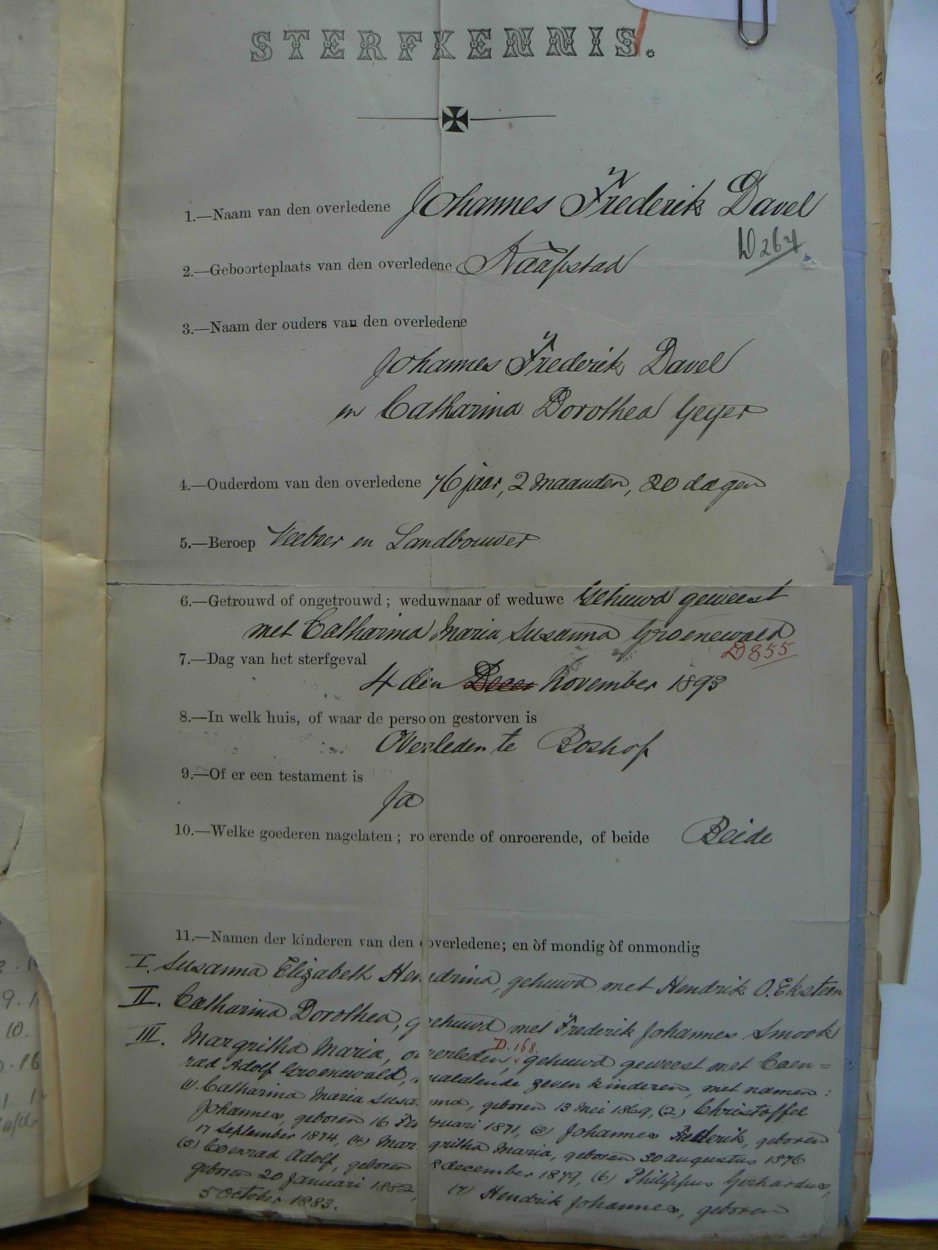 STERFKENNIS.
1.—Naam van den overledene Johannes Frederik Davel
D264
2.—Geboorteplaats van den overledene Kaapstad
3.—Naam der ouders van den overledene
Johannes Frederik Davel
en Catharina Dorothea Geyer
4.—Ouderdom van den overledene 76 jaar, 2 maanden, 20 dagen
5.—Beroep Veeboer en Landbouwer
6.—Getrouwd of ongetrouwd; weduwnaar of weduwe Gehuwd geweest
met Catharina Maria Susanna Groenewald
D855
7.—Dag van het sterfgeval
4 den November 1893
8.—In welk huis, of waar de persoon gestorven is
Overleden te Boshof
9.—Of er een testament is
Ja
10.—Welke goederen nagelaten; roerende of onroerende, of beide Beide
11.—Namen der kinderen van den overledene; en òf mondig òf onmondig
I. Susanna Elizabeth Hendrina, gehuwd met Hendrik O. Eksteen
II. Catharina Dorothea, gehuwd met Frederik Johannes Smook
D.168
III. Margritha Maria, overleden, gehuwd geweest met Coen=
rad Adolf Groenewald, nalatende zeven kinderen, met namen:
(1) Catharina Maria Susanna, geboren 13 Mei 1869, (2) Christoffel
Johannes, geboren 16 Februari 1871, (3) Johannes Frederik, geboren
17 September 1874, (4) Margritha Maria, geboren 30 augustus 1876
(5) Coenrad Adolf, geboren 8 december 1879, (6) Philippus Gerhardus,
geboren 20 Januari 1882, (7) Hendrik Johannes, geboren
5 October 1883.